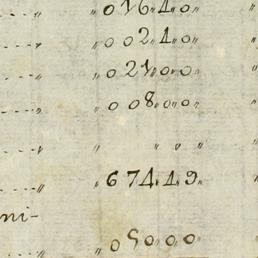 ....〃 〃016〃1〃0〃 〃
....〃 〃002〃1〃0〃 〃
....〃 〃021〃0〃0〃 〃
....〃 〃008〃0〃0〃 〃
....〃 〃 〃 〃 〃
....〃 〃674〃1〃9〃 〃
ni-
....〃 〃050〃0〃0〃 〃